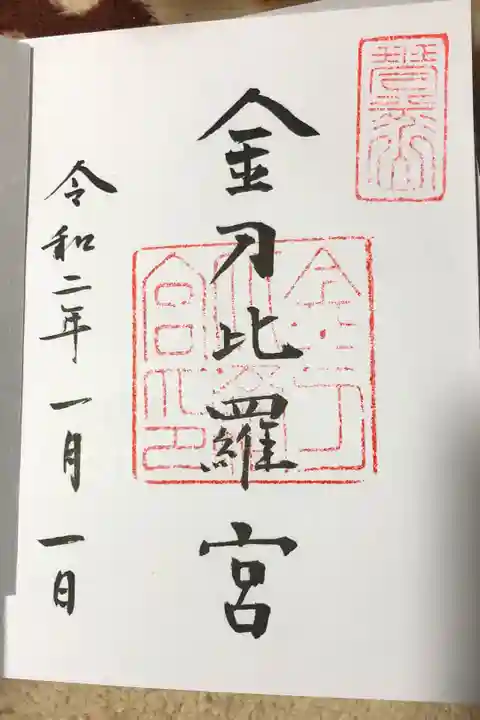 金刀比羅宮
令和二年一月一日